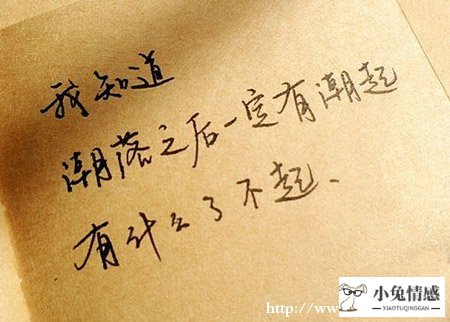 我知道
潮落之后一定有潮起
有什么了不起、
http://www
小兔情感
XIAOTUQINGGAN